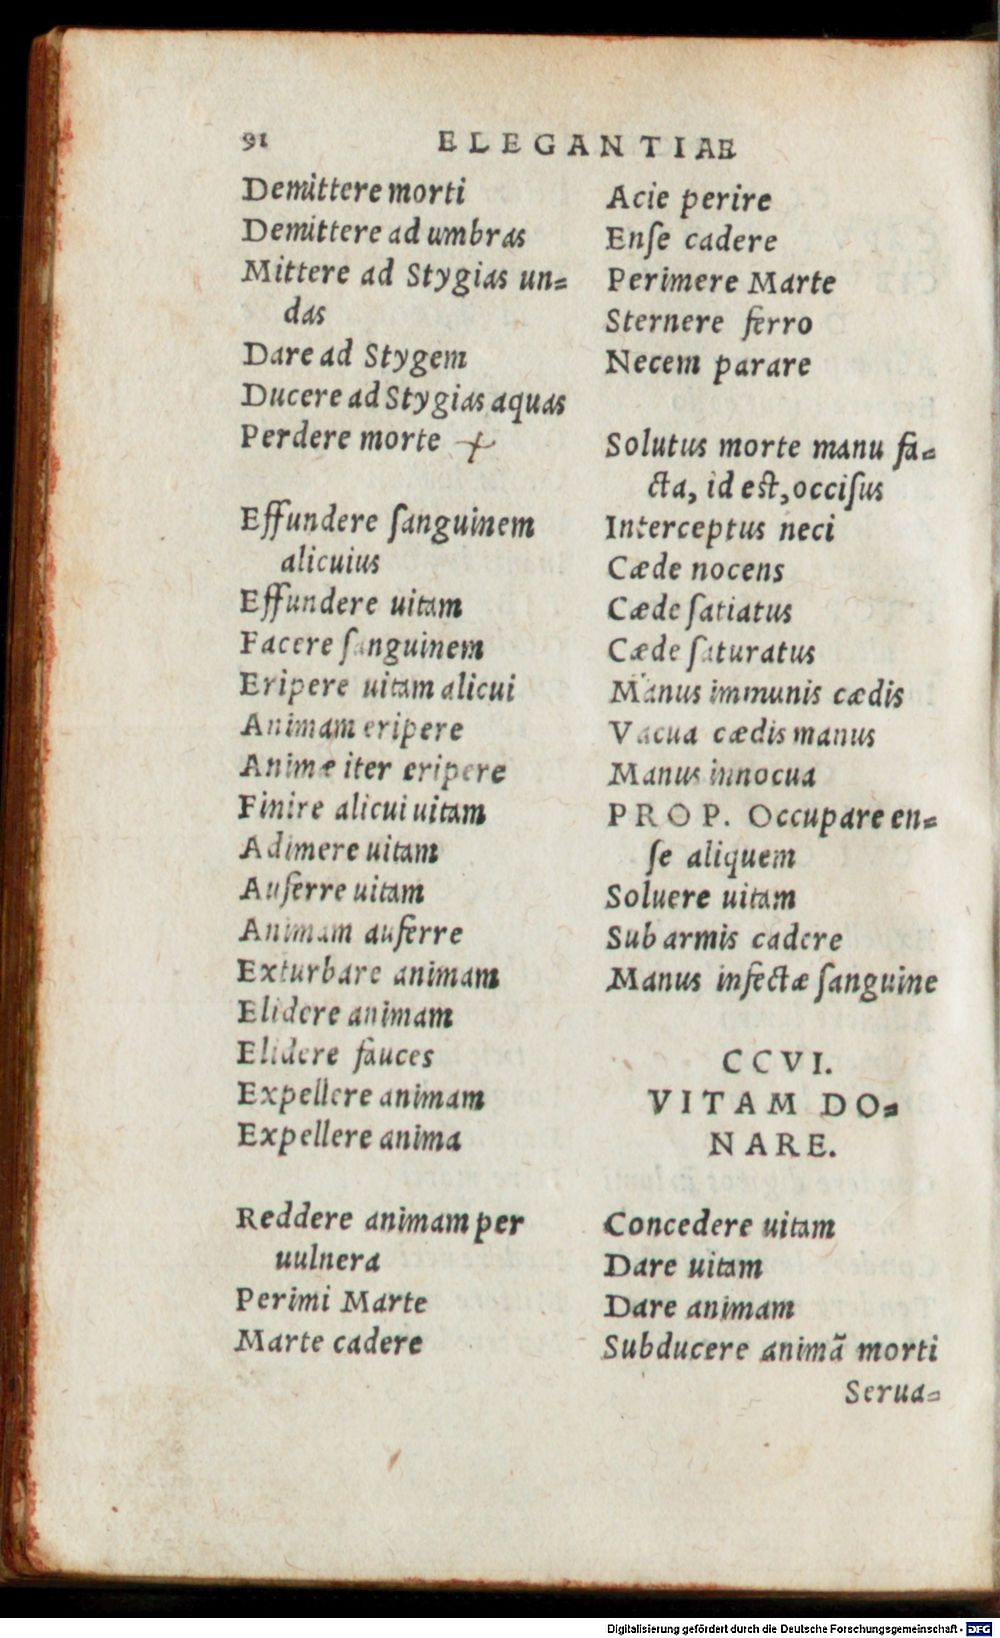 91 ELEGANTIAE
Demittere morti
Demittere ad umbras
Mittere ad Stygias un=
das
Dare ad Stygem
Ducere ad Stygias aquas
Perdere morte
Effundere ſanguinem
alicuius
Effundere uitam
Facere ſanguinem
Eripere uitam alicui
Animam eripere
Animæ iter eripere
Finire alicui uitam
Adimere uitam
Auferre uitam
Animam auferre
Exturbare animam
Elidere animam
Elidere fauces
Expellere animam
Expellere anima
Reddere animam per
uulnera
Perimi Marte
Marte cadere
Acie perire
Enſe cadere
Perimere Marte
Sternere ferro
Necem parare
Solutus morte manu fa=
cta, id est, occiſus
Interceptus neci
Cæde nocens
Cæde ſatiatus
Cæde ſaturatus
Manus immunis cædis
Vacua cædis manus
Manus innocua
PROP. Occupare en=
ſe aliquem
Soluere uitam
Sub armis cadere
Manus infectæ ſanguine
CCVI.
VITAM DO=
NARE.
Concedere uitam
Dare uitam
Dare animam
Subducere animã morti
Serua=
Digitalisierung gefördert durch die Deutsche Forschungsgemeinschaft - DFG